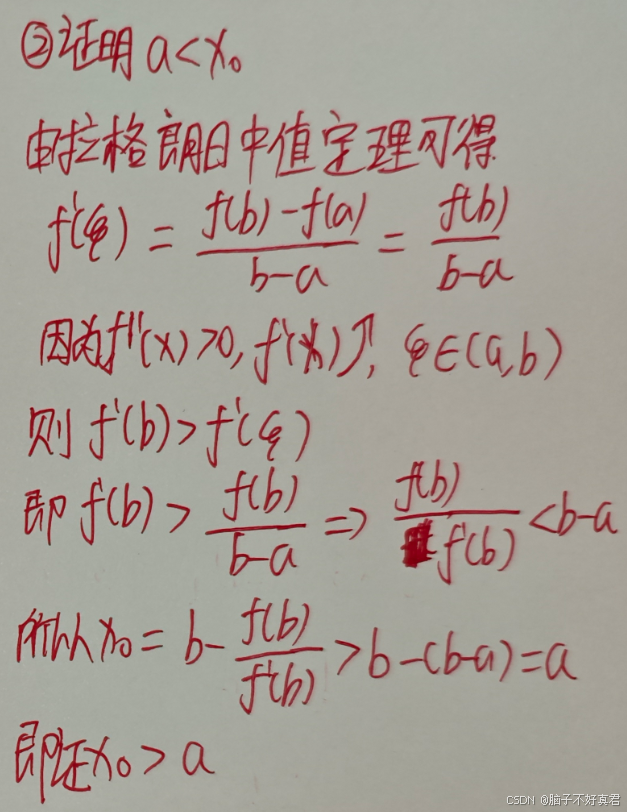 ②证明 a<x₀
由拉格朗日中值定理可得
f'(ξ) = \frac{f(b)-f(a)}{b-a} = \frac{f(b)}{b-a}
因为f''(x)>0, f'(x)↑, ξ∈(a,b)
则 f'(b)>f'(ξ)
即 f'(b) > \frac{f(b)}{b-a} ⇒ \frac{f(b)}{f'(b)} <b-a
所以 x₀ = b- \frac{f(b)}{f'(b)} >b-(b-a)=a
即证x₀ > a
CSDN @脑子不好真君